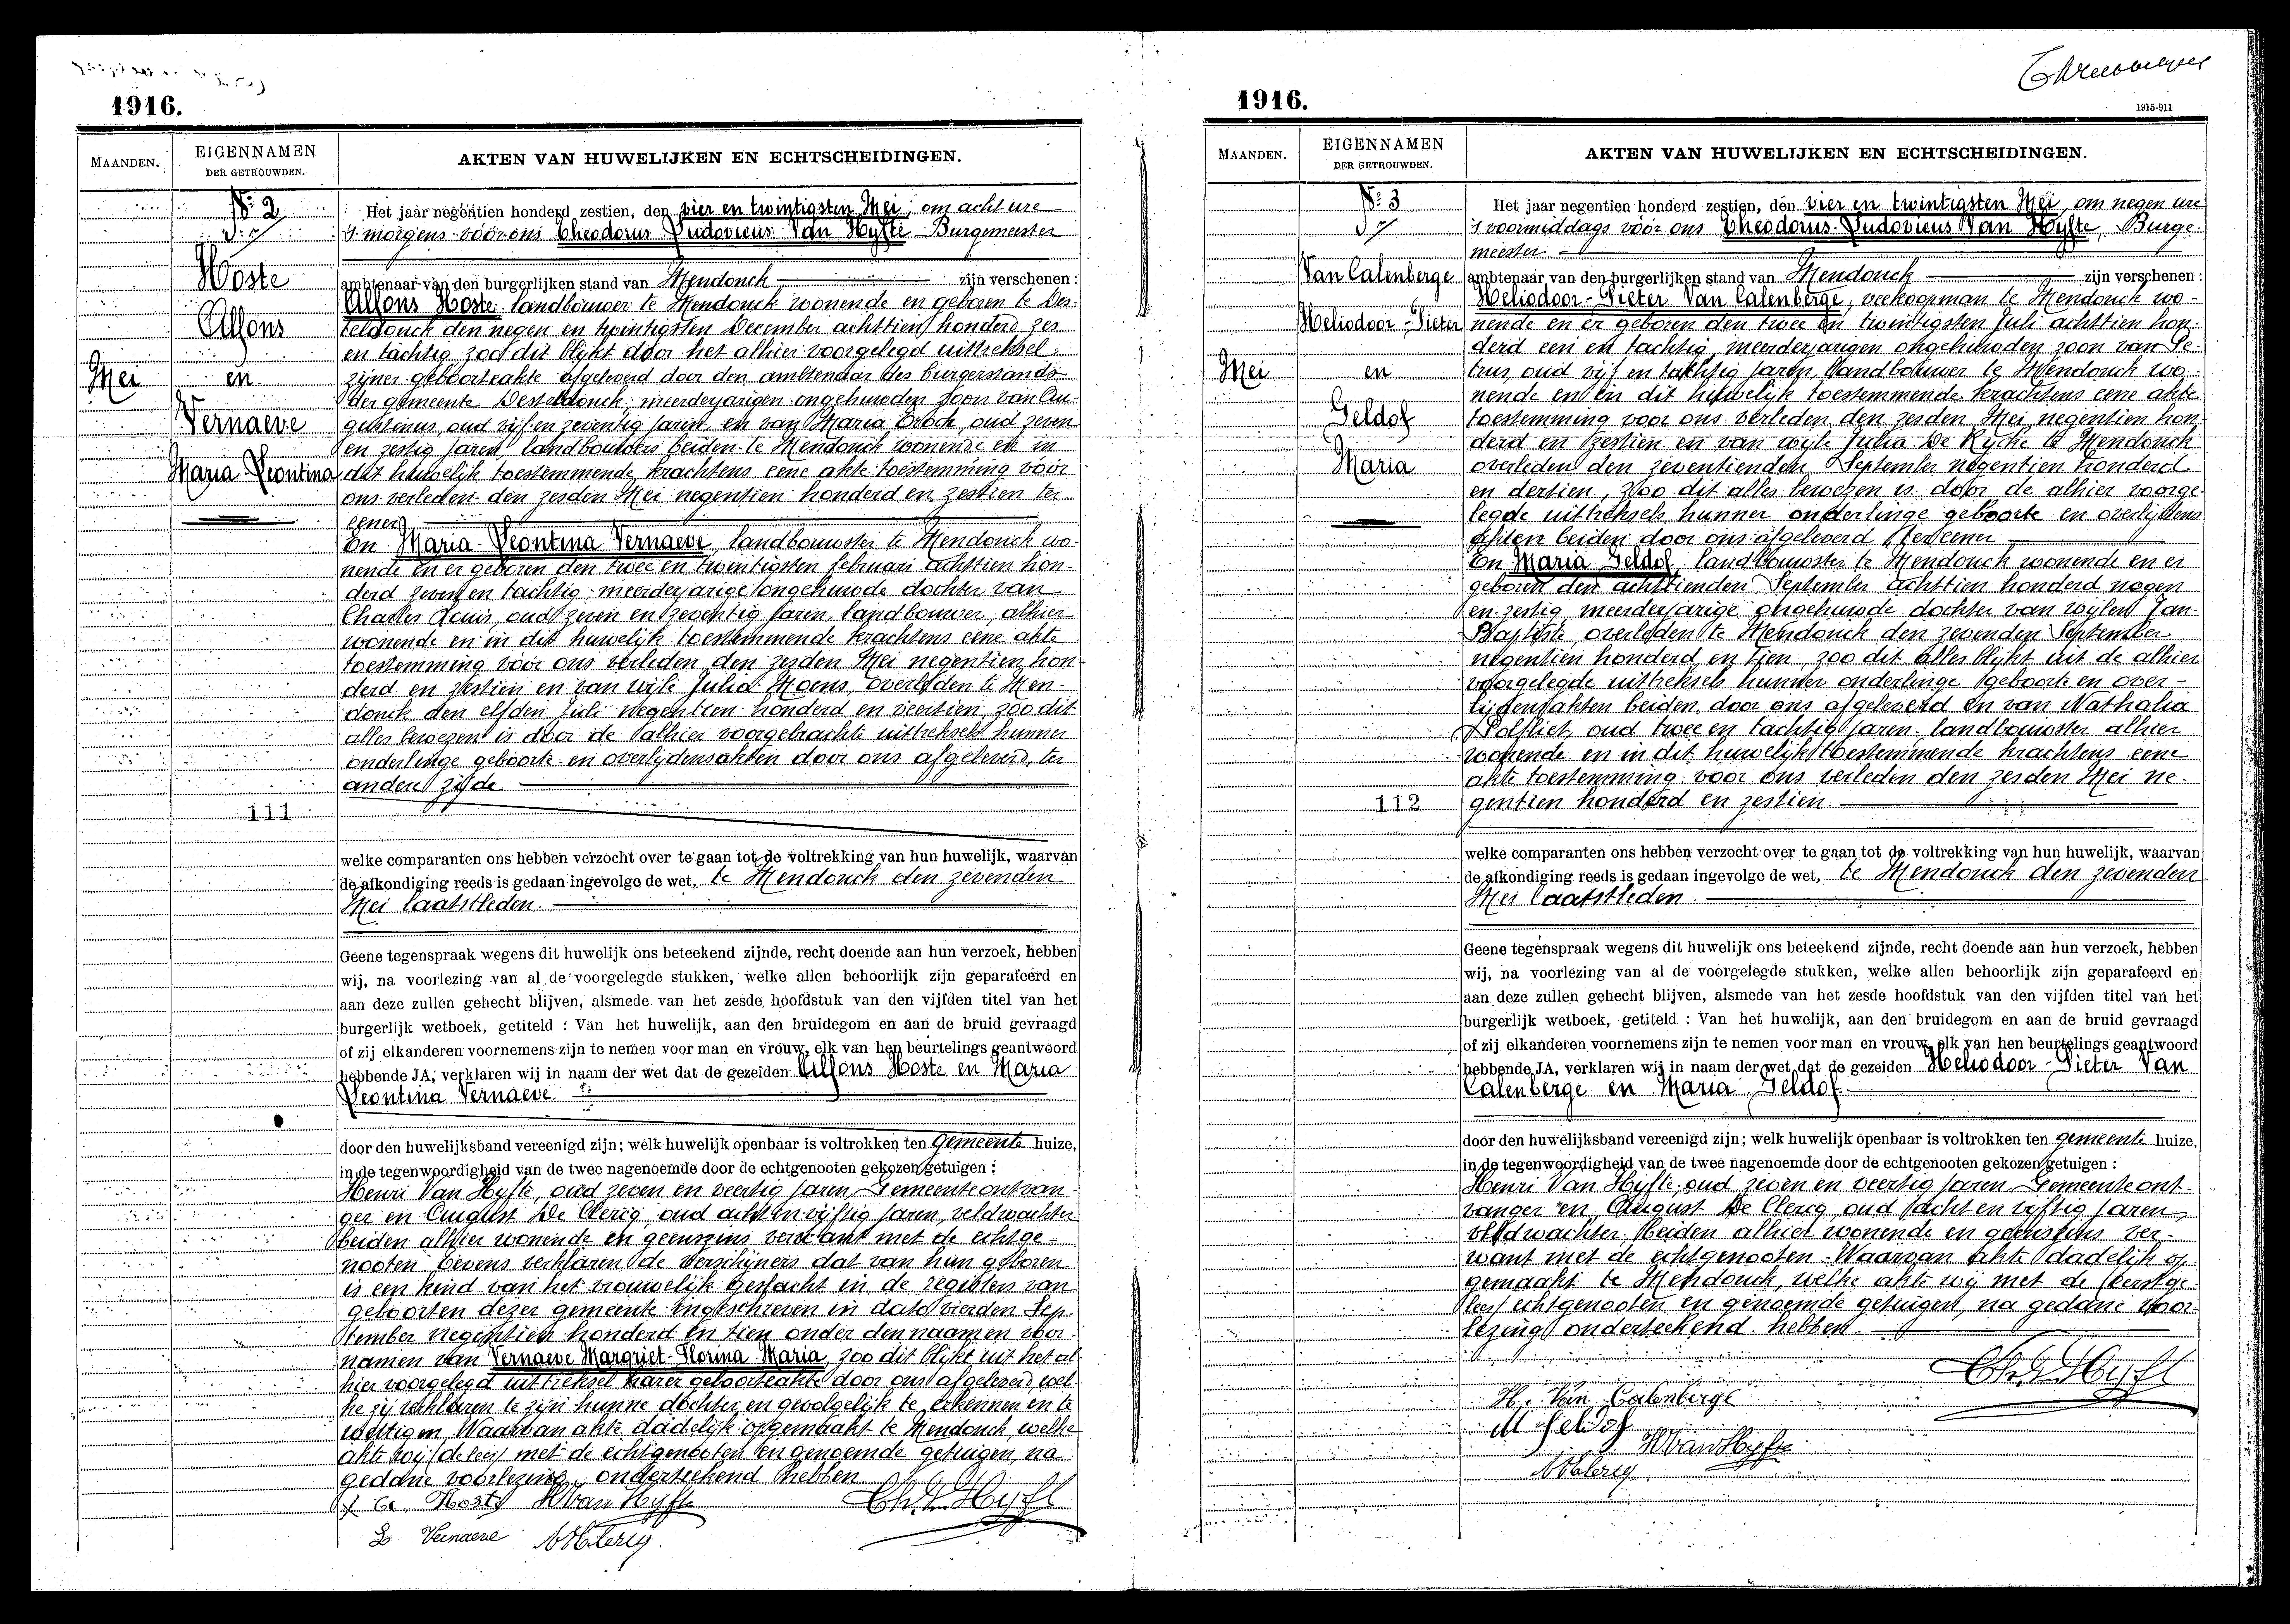 1916.
MAANDEN.
EIGENNAMEN
DER GETROUWDEN.
AKTEN VAN HUWELIJKEN EN ECHTSCHEIDINGEN.
No. 2
Hoste
Alfons
Mei
en
Vernaeve
Maria-Leontina
111
Het jaar negentien honderd zestien, den vier en twintigsten Mei, om acht ure
's morgens vóór ons Theodorus Ludovicus Van Hyfte Burgemeester
ambtenaar van den burgerlijken stand van Mendonck zijn verschenen :
Alfons Hoste landbouwer te Mendonck wonende en geboren te Des-
teldonck den negen en twintigsten December achttien honderd zes
en tachtig zoo dit blijkt door het alhier voorgelegd uittreksel
zijner geboorteakte afgeleverd door den ambtenaar des burgerstands
der gemeente Desteldonck, meerderjarigen ongehuwden zoon van Au-
gustinus, oud vijf en zeventig jaren, en van Maria Brock, oud zeven
en zestig jaren, landbouwers beiden te Mendonck wonende en in
dit huwelijk toestemmende krachtens eene akte toestemming vóór
ons verleden den zesden Mei negentien honderd en zestien ter
eener
En Maria-Leontina Vernaeve, landbouwster te Mendonck wo-
nende en er geboren den twee en twintigsten februari achttien hon-
derd zeven en tachtig meerderjarige ongehuwde dochter van
Charles Louis, oud zeven en zeventig jaren, landbouwer, alhier
wonende en in dit huwelijk toestemmende krachtens eene akte
toestemming vóór ons verleden den zesden Mei negentien hon-
derd en zestien en van wijle Julia Moens, overleden te Men-
donck den elfden Juli negentien honderd en veertien, zoo dit
alles bewezen is door de alhier voorgebrachte uittreksels hunner
onderlinge geboorte en overlijdensakten door ons afgeleverd, ter
andere zijde
welke comparanten ons hebben verzocht over te gaan tot de voltrekking van hun huwelijk, waarvan
de afkondiging reeds is gedaan ingevolge de wet, te Mendonck den zevenden
Mei laatstleden.
Geene tegenspraak wegens dit huwelijk ons beteekend zijnde, recht doende aan hun verzoek, hebben
wij, na voorlezing van al de voorgelegde stukken, welke allen behoorlijk zijn geparafeerd en
aan deze zullen gehecht blijven, alsmede van het zesde hoofdstuk van den vijfden titel van het
burgerlijk wetboek, getiteld : Van het huwelijk, aan den bruidegom en aan de bruid gevraagd
of zij elkanderen voornemens zijn te nemen voor man en vrouw, elk van hen beurtelings geantwoord
hebbende JA, verklaren wij in naam der wet dat de gezeiden Alfons Hoste en Maria
Leontina Vernaeve
door den huwelijksband vereenigd zijn; welk huwelijk openbaar is voltrokken ten gemeente huize,
in de tegenwoordigheid van de twee nagenoemde door de echtgenooten gekozen getuigen :
Henri Van Hyfte, oud zeven en veertig jaren, Gemeenteontvan-
ger en August De Clercq, oud acht en vijftig jaren, veldwachter
beiden alhier wonende en geenszins verwant met de echtge-
nooten. Tevens verklaren de verschijners dat van hun geboren
is een kind van het vrouwelijk geslacht in de registers van
geboorten dezer gemeente ingeschreven in dato vierden Sep-
tember negentien honderd en tien onder den naam en voor-
namen van Vernaeve Margriet-Florina Maria, zoo dit blijkt uit het al-
hier voorgelegd uittreksel harer geboorteakte door ons afgeleverd, wel-
ke zij verklaren te zijn hunne dochter en gevolgelijk te erkennen en te
wettigen. Waarvan akte dadelijk opgemaakt te Mendonck, welke
akte wij (de lees) met de echtgenooten en genoemde getuigen, na
gedane voorlezing, onderteekend hebben
A Hoste HVanHyfte Th. V. Hyfte
L Vernaeve ADClercq
1916.
1915-911
MAANDEN.
EIGENNAMEN
DER GETROUWDEN.
AKTEN VAN HUWELIJKEN EN ECHTSCHEIDINGEN.
No. 3
Van Calenberge
Heliodoor-Pieter
Mei
en
Geldof
Maria
112
Het jaar negentien honderd zestien, den vier en twintigsten Mei, om negen ure
's voormiddags vóór ons Theodorus-Ludovicus Van Hyfte, Burge-
meester
ambtenaar van den burgerlijken stand van Mendonck zijn verschenen :
Heliodoor-Pieter Van Calenberge, veekoopman te Mendonck wo-
nende en er geboren den twee en twintigsten Juli achttien hon-
derd een en tachtig, meerderjarigen ongehuwden zoon van Pe-
trus, oud vijf en tachtig jaren, landbouwer te Mendonck wo-
nende en in dit huwelijk toestemmende krachtens eene akte
toestemming voor ons verleden den zesden Mei negentien hon-
derd en zestien en van wijle Julia De Rijcke te Mendonck
overleden den zeventienden September negentien honderd
en dertien, zoo dit alles bewezen is door de alhier voorge-
legde uittreksels hunner onderlinge geboorte en overlijdens
akten beiden door ons afgeleverd ter eener
En Maria Geldof, landbouwster te Mendonck wonende en er
geboren den achttienden September achttien honderd negen
en zestig meerderjarige ongehuwde dochter van wijlen Jan-
Baptiste, overleden te Mendonck den zevenden September
negentien honderd en tien, zoo dit alles blijkt uit de alhier
voorgelegde uittreksels hunner onderlinge geboorte en over-
lijdensakten beiden door ons afgeleverd en van Nathalia
Polfliet, oud twee en tachtig jaren, landbouwster alhier
wonende en in dit huwelijk toestemmende krachtens eene
akte toestemming voor ons verleden den zesden Mei ne-
gentien honderd en zestien.
welke comparanten ons hebben verzocht over te gaan tot de voltrekking van hun huwelijk, waarvan
de afkondiging reeds is gedaan ingevolge de wet, te Mendonck den zevenden
Mei laatstleden.
Geene tegenspraak wegens dit huwelijk ons beteekend zijnde, recht doende aan hun verzoek, hebben
wij, na voorlezing van al de voorgelegde stukken, welke allen behoorlijk zijn geparafeerd en
aan deze zullen gehecht blijven, alsmede van het zesde hoofdstuk van den vijfden titel van het
burgerlijk wetboek, getiteld : Van het huwelijk, aan den bruidegom en aan de bruid gevraagd
of zij elkanderen voornemens zijn te nemen voor man en vrouw, elk van hen beurtelings geantwoord
hebbende JA, verklaren wij in naam der wet dat de gezeiden Heliodoor-Pieter Van
Calenberge en Maria Geldof
door den huwelijksband vereenigd zijn; welk huwelijk openbaar is voltrokken ten gemeente huize,
in de tegenwoordigheid van de twee nagenoemde door de echtgenooten gekozen getuigen :
Henri Van Hyfte, oud zeven en veertig jaren, Gemeenteont-
vanger en August De Clercq, oud acht en vijftig jaren,
veldwachter, beiden alhier wonende en geenszins ver-
want met de echtgenooten. Waarvan akte dadelijk op-
gemaakt te Mendonck, welke akte wij met de
echtgenooten en genoemde getuigen, na gedane voor-
lezing onderteekend hebben.
Th. V. Hyfte
H. Van Calenberge
M Geldof
HVanHyfte
ADClercq